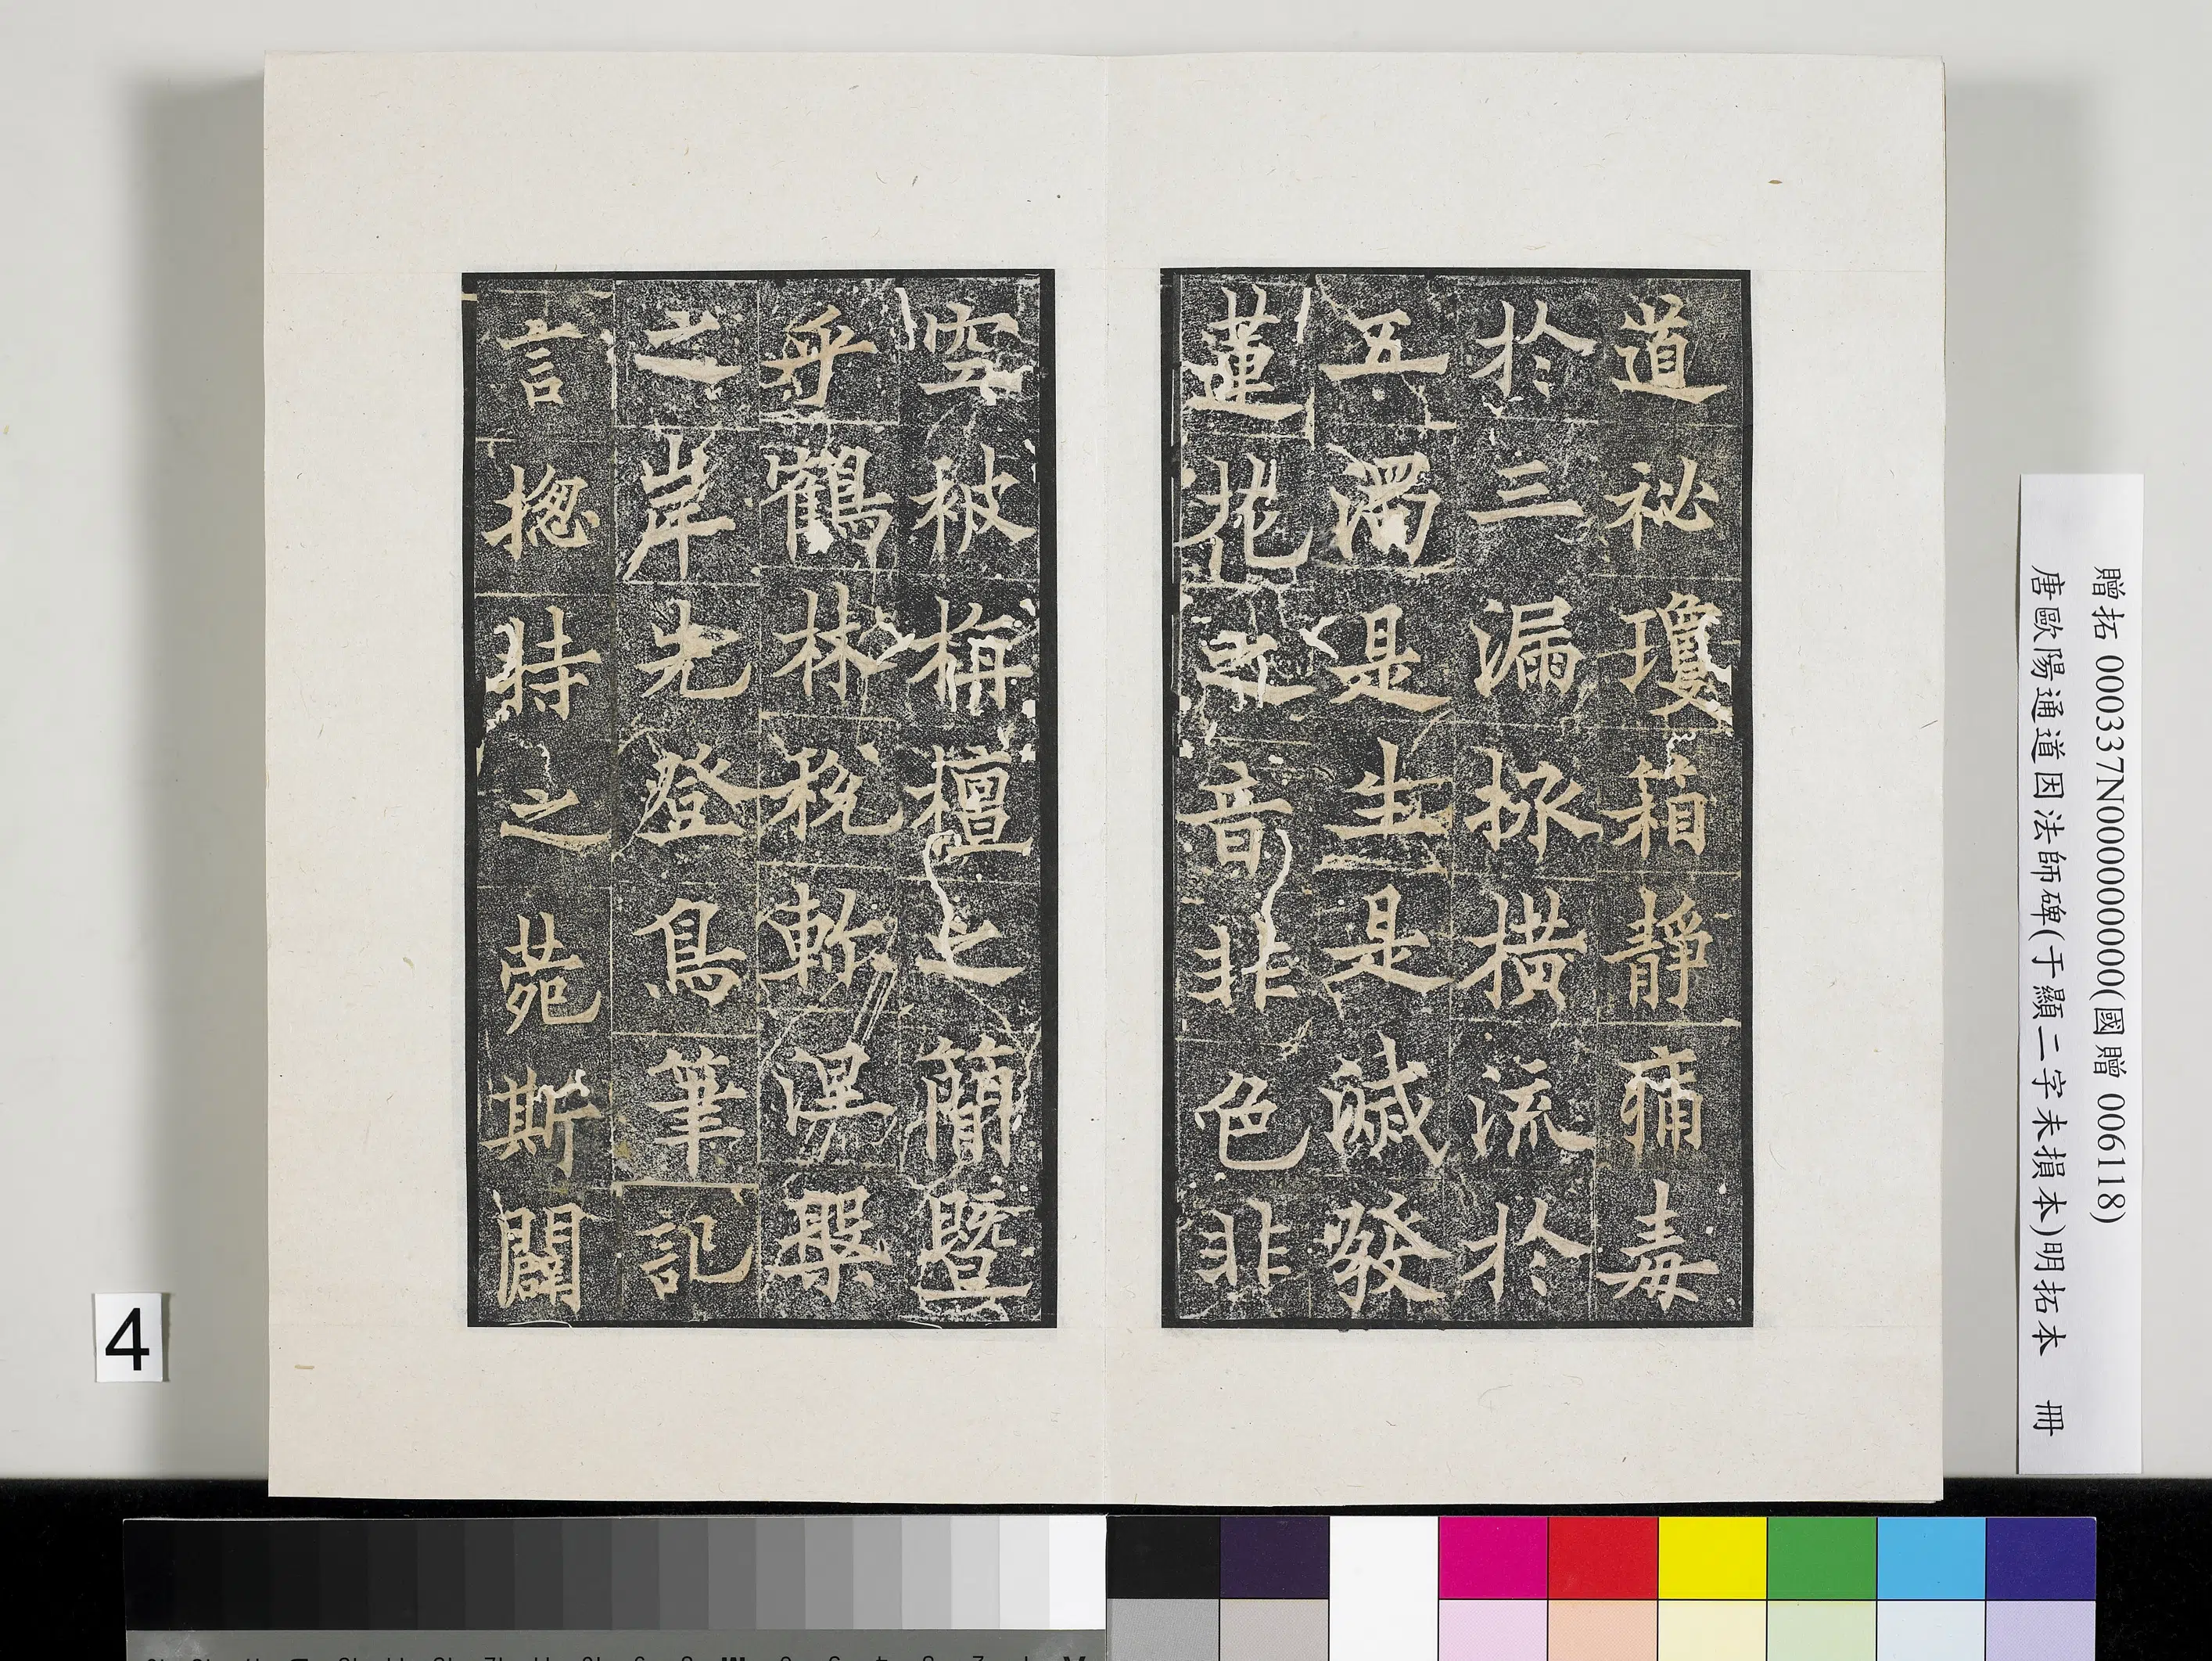 道祕瓊箱靜痛毒
於三漏拯橫流於
五濁是生是滅發
蓮花之音非色非
空被栴檀之簡暨
乎鶴林稅軫涅槃
之岸先登鳥筆記
言捴持之菀斯闢
贈拓 000337N000000000(國贈 006118)
唐歐陽通道因法師碑(于顯二字未損本)明拓本 冊
4